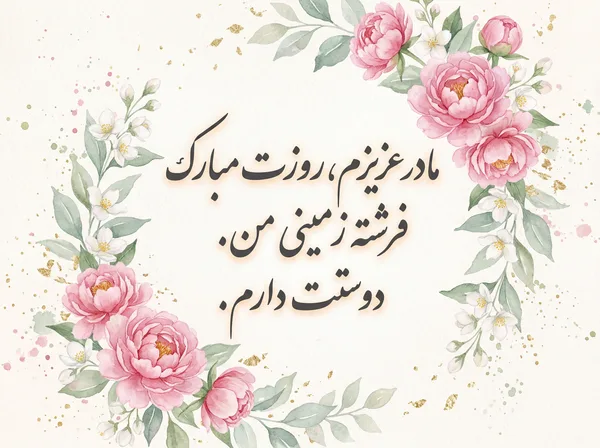 مادر عزیزم، روزت مبارک
فرشته زمینی من.
دوستت دارم.